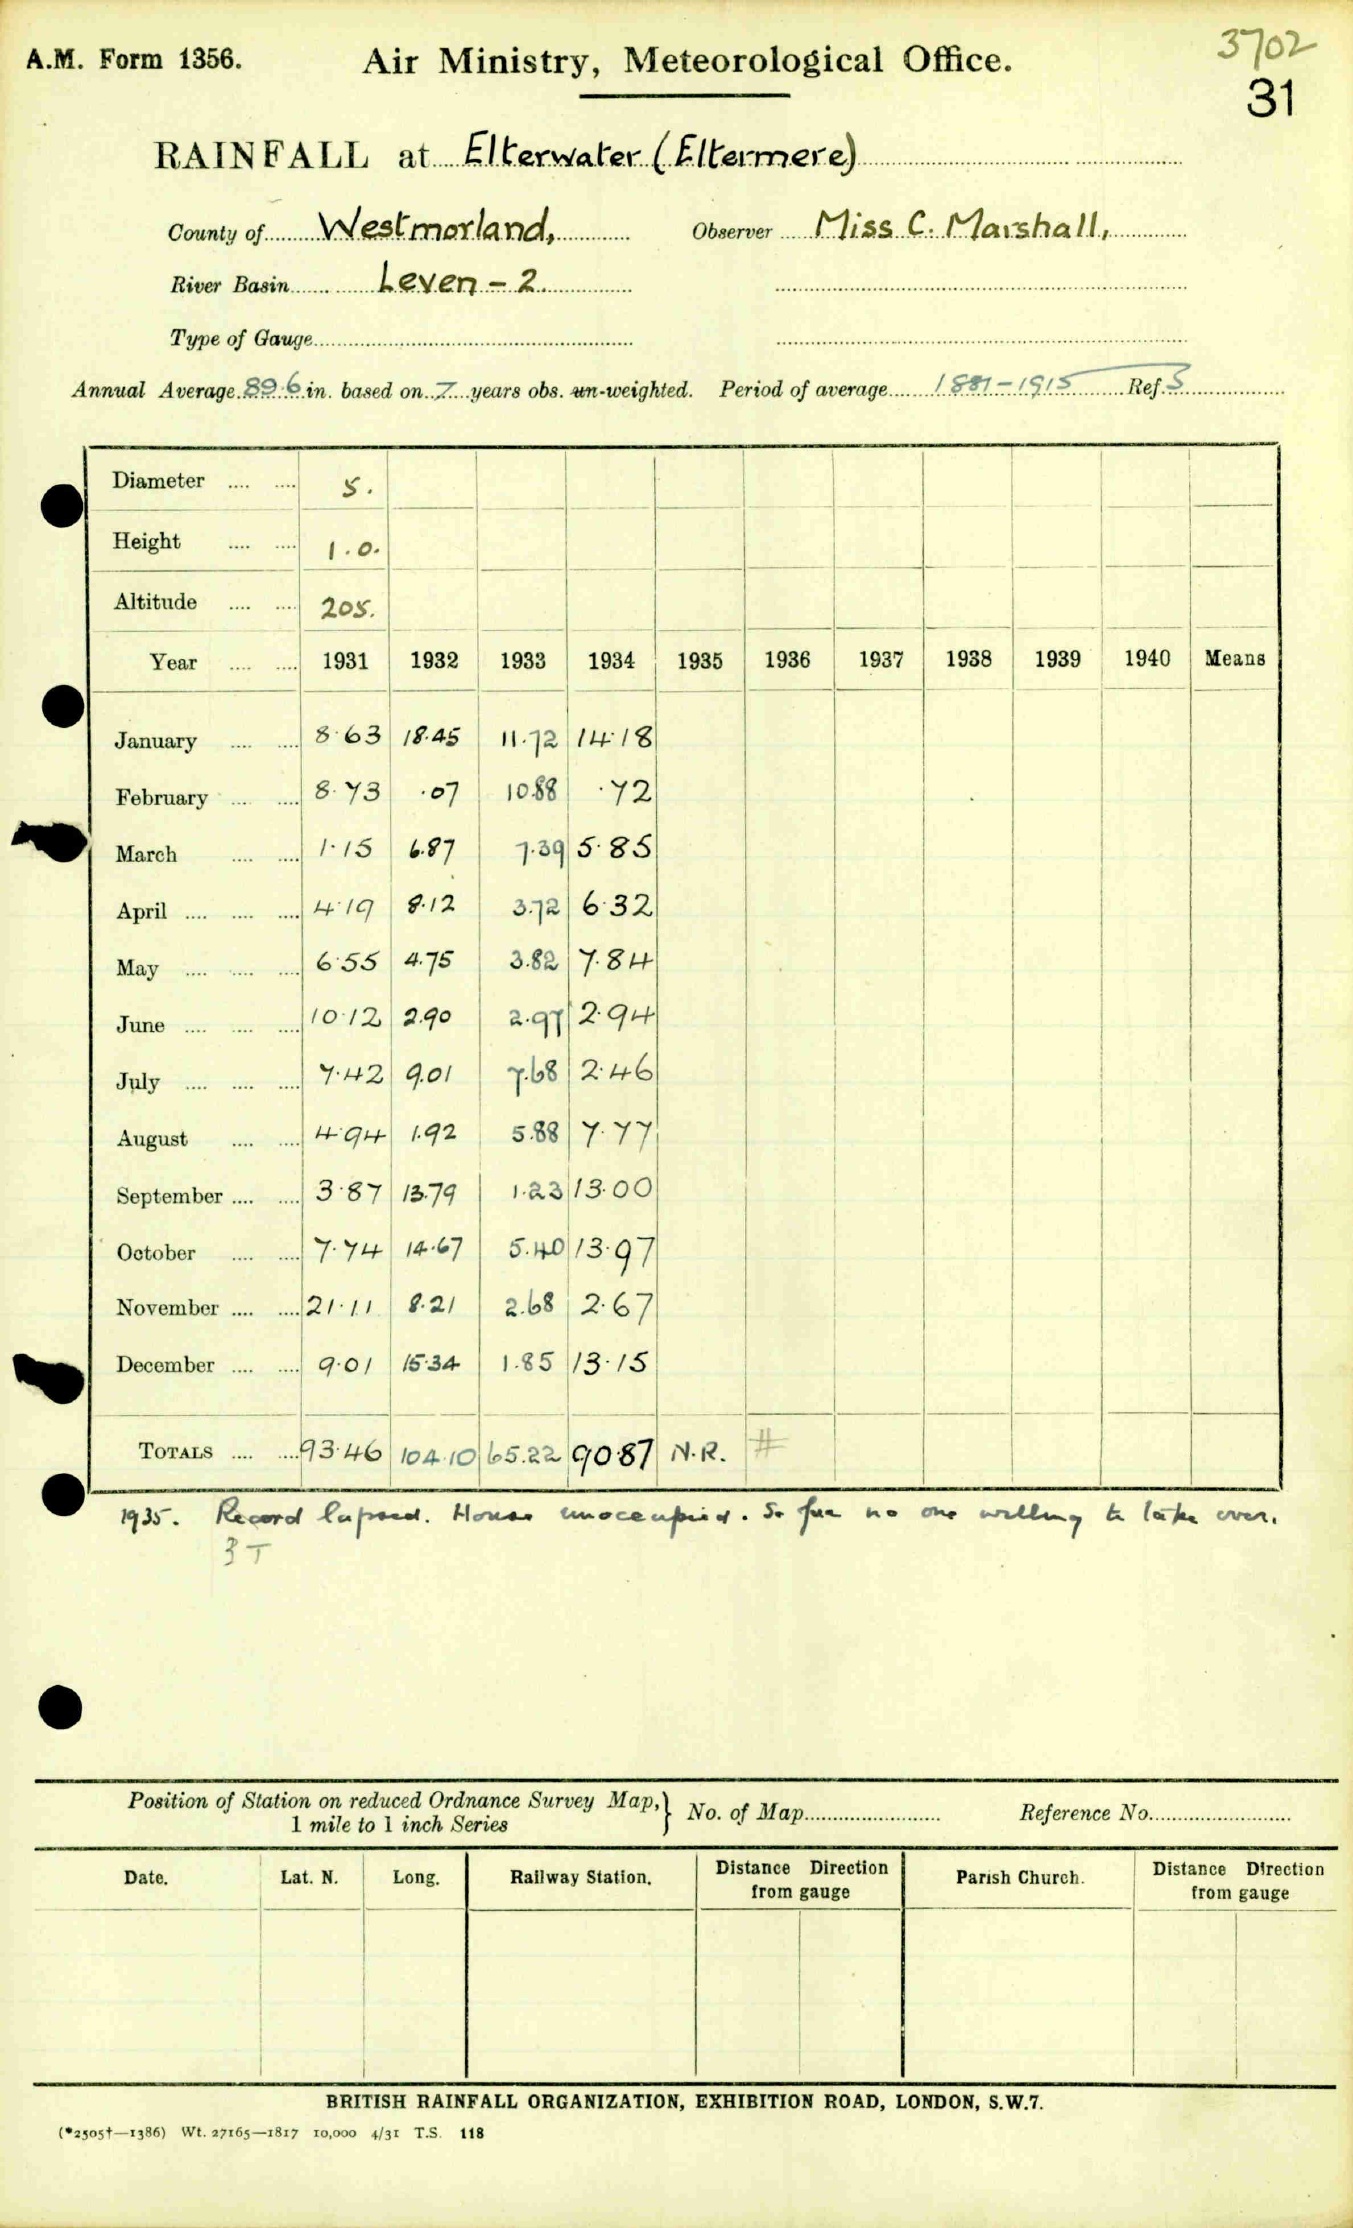 3702
A.M. Form 1356. Air Ministry, Meteorological Office.
31
RAINFALL at Elterwater (Eltermere)
County of Westmorland, Observer Miss C. Marshall,
River Basin Leven - 2.
Type of Gauge
Annual Average 89.6 in. based on 7 years obs. un-weighted. Period of average 1881-1915 Ref. S
Diameter 5.
Height 1.0.
Altitude 205.
Year 1931 1932 1933 1934 1935 1936 1937 1938 1939 1940 Means
January 8.63 18.45 11.72 14.18
February 8.73 .07 10.88 .72
March 1.15 6.87 7.39 5.85
April 4.19 8.12 3.72 6.32
May 6.55 4.75 3.82 7.84
June 10.12 2.90 2.97 2.94
July 7.42 9.01 7.68 2.46
August 4.94 1.92 5.88 7.77
September 3.87 13.79 1.23 13.00
October 7.74 14.67 5.40 13.97
November 21.11 8.21 2.68 2.67
December 9.01 15.34 1.85 13.15
TOTALS 93.46 104.10 65.22 90.87 N.R. #
1935. Record lapsed. House unoccupied. So far no one willing to take over.
Position of Station on reduced Ordnance Survey Map, } No. of Map Reference No.
1 mile to 1 inch Series
Date. Lat. N. Long. Railway Station. Distance Direction from gauge Parish Church. Distance Direction from gauge
BRITISH RAINFALL ORGANIZATION, EXHIBITION ROAD, LONDON, S.W.7.
(*2505†—1386) Wt. 27165—1817 10,000 4/31 T.S. 118